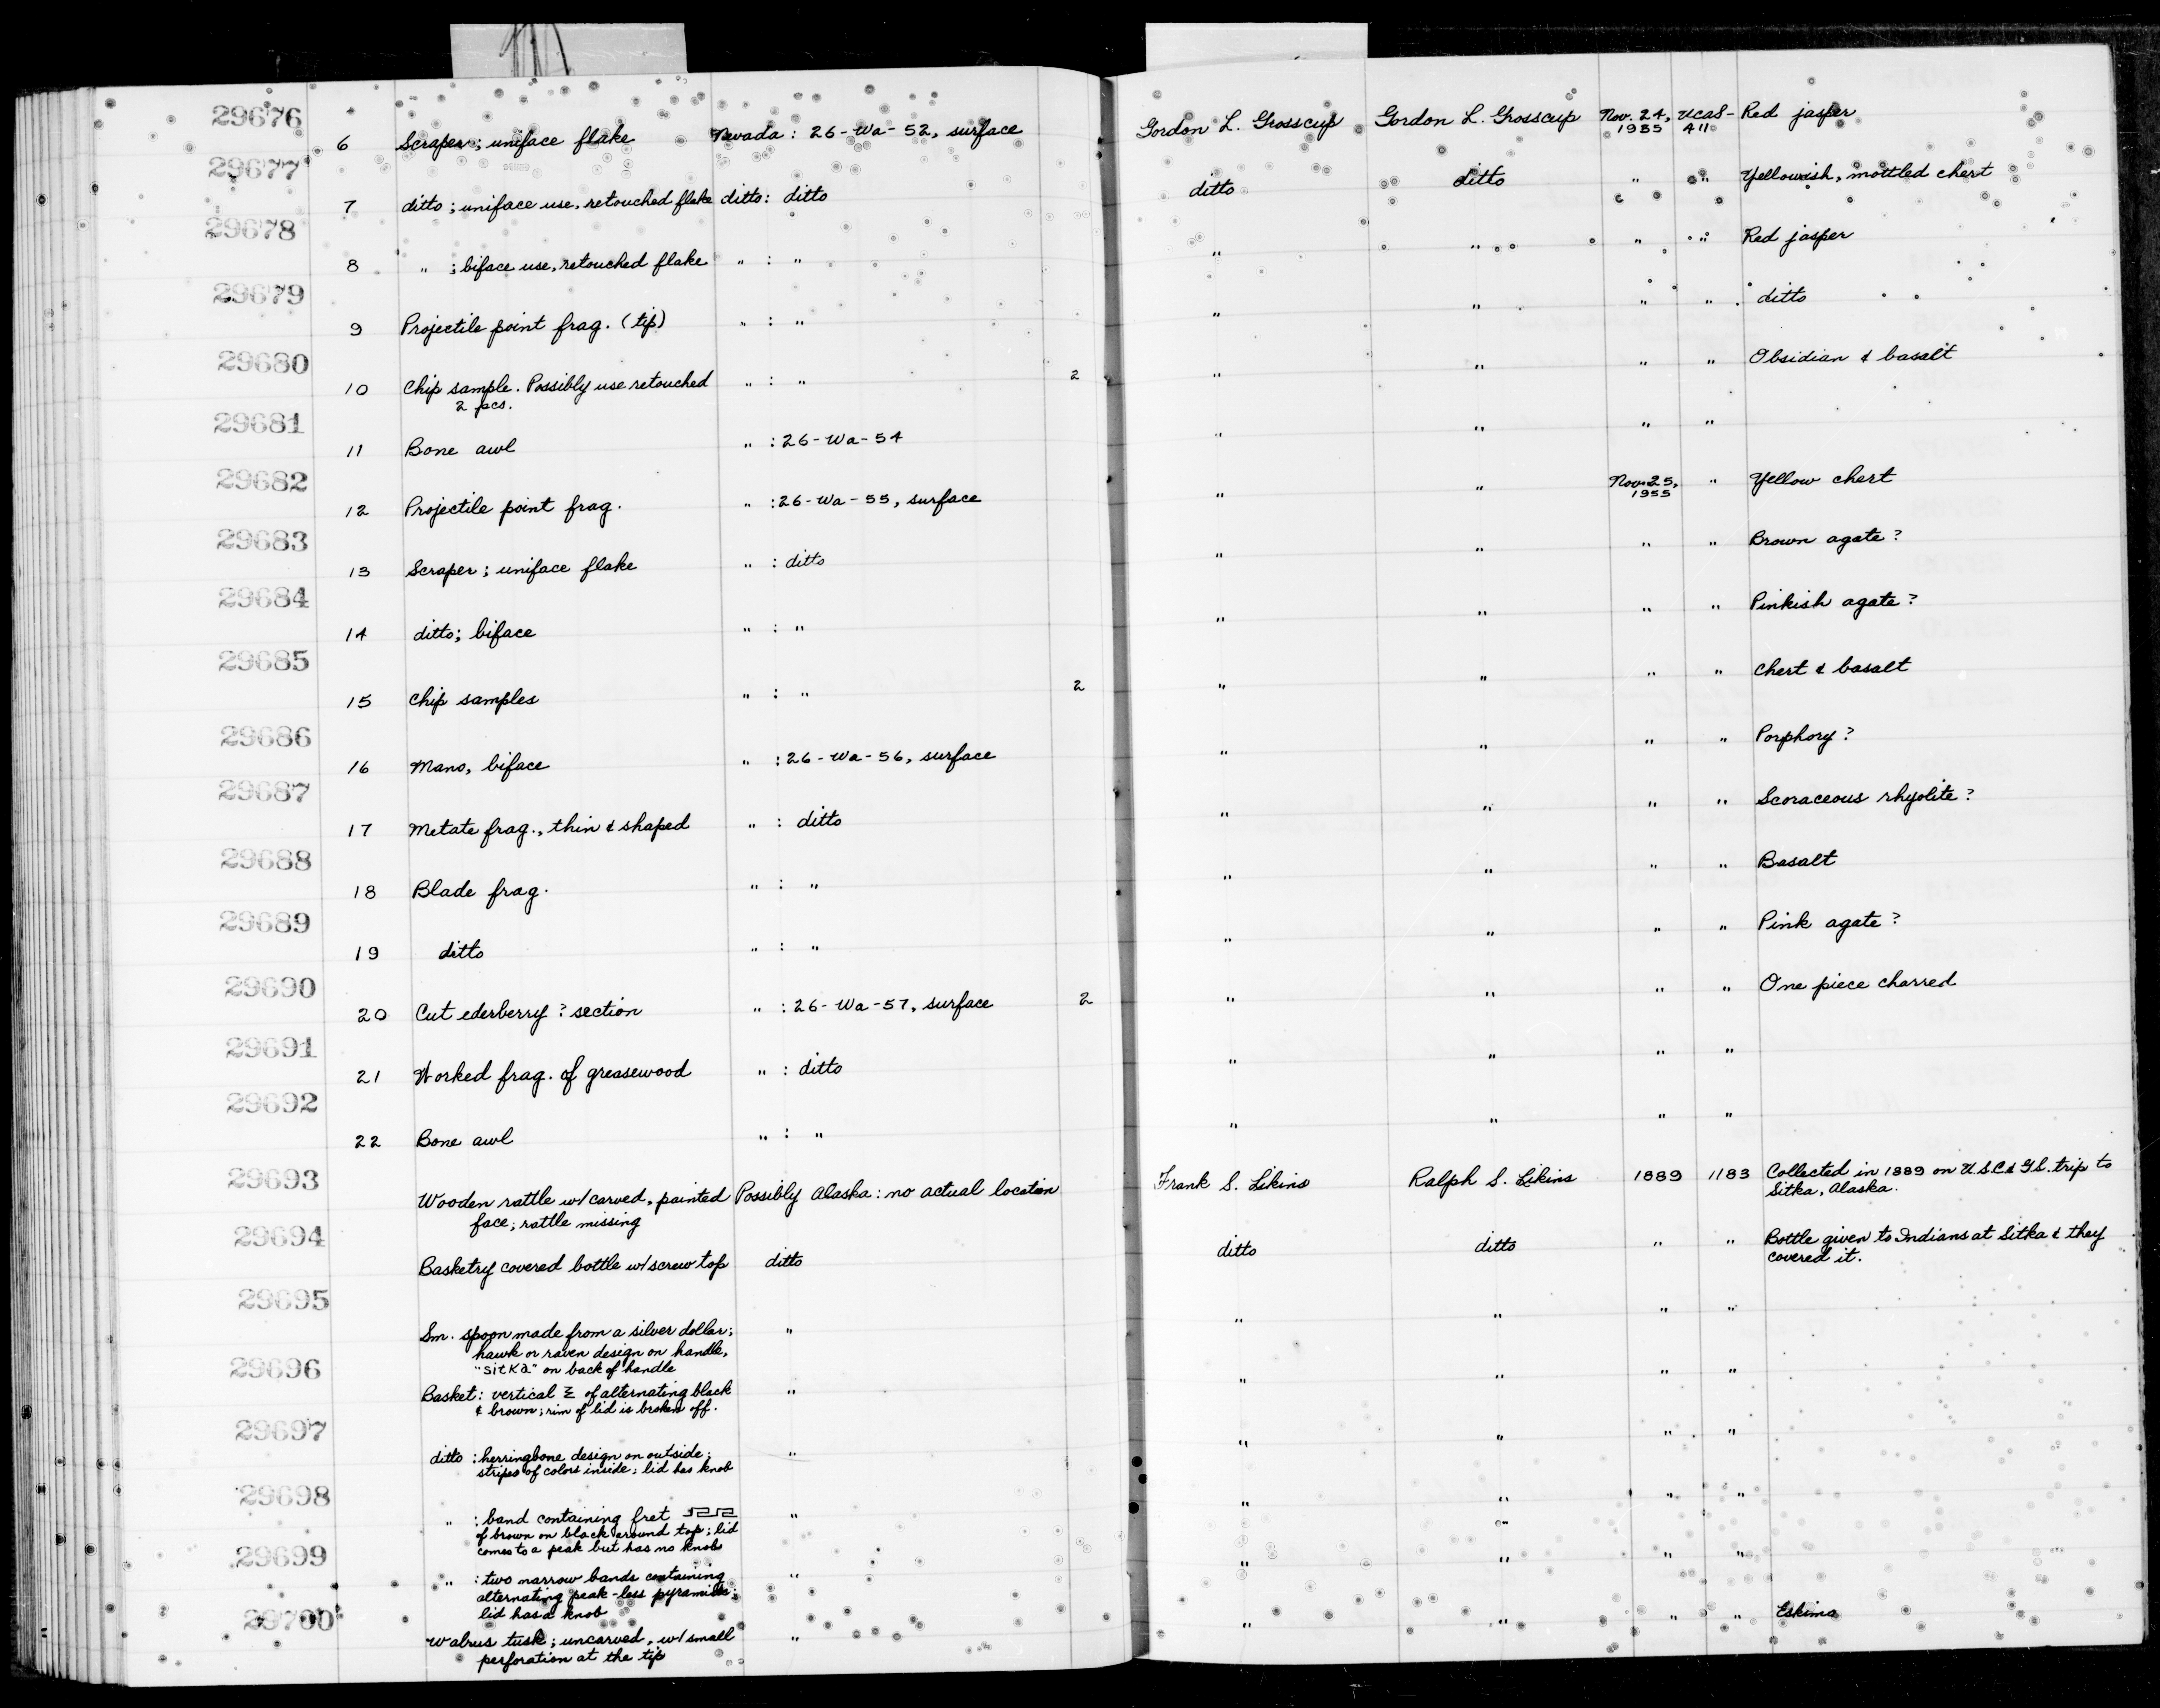 29676
6 Scraper; uniface flake Nevada: 26-Wa-52, surface Gordon L. Grosscup Gordon L. Grosscup Nov. 24, 1955 UCAS-A11 Red jasper
29677
7 ditto; uniface use, retouched flake ditto: ditto ditto ditto " " Yellowish, mottled chert
29678
8 " ; biface use, retouched flake " : " " " " " Red jasper
29679
9 Projectile point frag. (tip) " : " " " " " ditto
29680
10 Chip sample. Possibly use retouched " : " 2 " " " " Obsidian & basalt
2 pcs.
29681
11 Bone awl " : 26-Wa-54 " " " "
29682
12 Projectile point frag. " : 26-Wa-55, surface " " Nov. 25, 1955 " Yellow chert
29683
13 Scraper; uniface flake " : ditto " " " " Brown agate?
29684
14 ditto; biface " : " " " " " Pinkish agate?
29685
15 Chip samples " : " 2 " " " " Chert & basalt
29686
16 Mano, biface " : 26-Wa-56, surface " " " " Porphory?
29687
17 Metate frag., thin & shaped " : ditto " " " " Scoraceous rhyolite?
29688
18 Blade frag. " : " " " " " Basalt
29689
19 ditto " : " " " " " Pink agate?
29690
20 Cut ederberry? section " : 26-Wa-57, surface 2 " " " " One piece charred
29691
21 Worked frag. of greasewood " : ditto " " " "
29692
22 Bone awl " : " " " " "
29693
Wooden rattle w/ carved, painted Possibly Alaska: no actual location Frank S. Likins Ralph S. Likins 1889 1183 Collected in 1889 on U.S.C.& G.S. trip to
face; rattle missing Sitka, Alaska.
29694
Basketry covered bottle w/ screw top ditto ditto ditto " " Bottle given to Indians at Sitka & they
covered it.
29695
Sm. spoon made from a silver dollar; " " " " "
hawk or raven design on handle,
"Sitka" on back of handle
29696
Basket: vertical Σ of alternating black " " " " "
& brown; rim of lid is broken off.
29697
ditto: herringbone design on outside; " " " " "
stripes of colors inside; lid has knob
29698
" : band containing fret " " " " "
of brown on black around top; lid
comes to a peak but has no knob
29699
" : two narrow bands containing " " " " "
alternating peak-less pyramids;
lid has a knob
29700
Walrus tusk; uncarved, w/ small " " " " " Eskimo
perforation at the tip